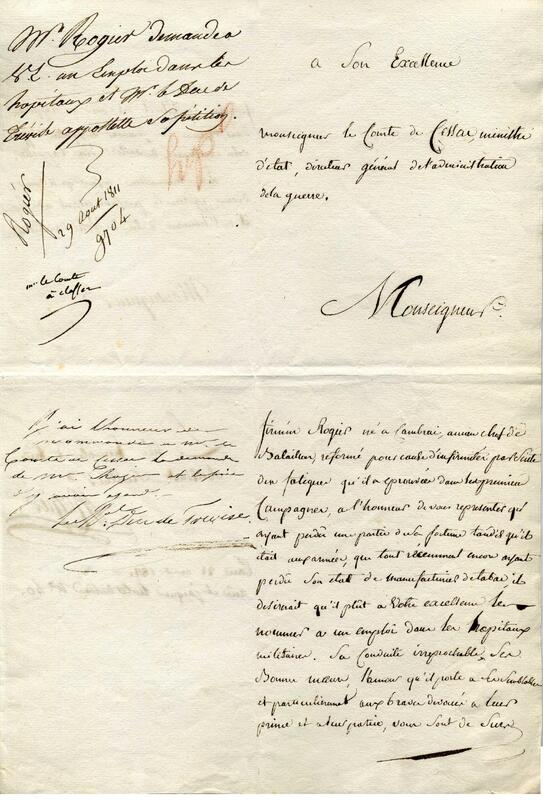 Mr. Rogier demande a
V.E. un Emploi dans les
hopitaux et Mr. le Duc de
Trévise appostille sa pétition.
Rogier
29 aout 1811
9704
mr. le Comte
à Son Excellence
monseigneur le Comte de Cessac, ministre
d'état, directeur général de l'administration
de la guerre.
Monseigneur
J'ai l'honneur de
recommander a Mr. le
Comte de Cessac la demande
de Mr. Rogier et le prie
d'y avoir égard.
Le Ml. Duc de Trevise.
firmin Rogier né a Cambrai, ancien chef de
Bataillon, réformé pour cause d'infirmités par Suite
des fatigues qu'il a eprouvées dans les premieres
Campagnes, a l'honneur de vous representer qu'
ayant perdu une partie de sa fortune tandis qu'il
était aux armées, que tout recemment encore ayant
perdu Son état de manufactures de tabac, il
desirerait qu'il plut a Votre excellence le
nommer a un emploi dans les hopitaux
militaires. Sa Conduite irreprochable, Ses
Bonnes mœurs, l'amour qu'il porte a Ses Semblables
et particulierement aux braves devoués a leur
prince et a leur patrie, vous sont de Surs